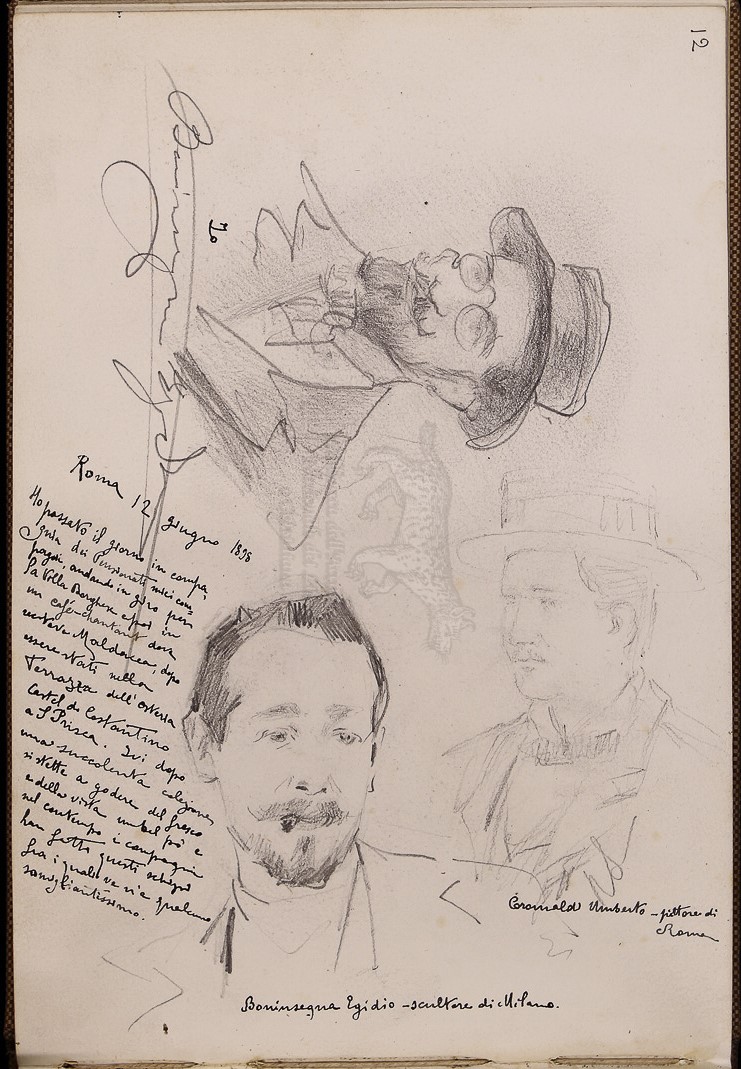 12
Boninsegna Egidio
Io
Roma 12 giugno 1898
Ho passato il giorno in compa-
gnia dei Pensionati miei com-
pagni, andando in giro per
la Villa Borghese e poi in
un café-chantant dove
Maldacea, dopo
essere stati sulla
Terrazza dell'osteria
Castel di Costantino
a S. Prisca. Ivi dopo
una succolenta colazione
si stette a godere del fresco
e della vista un bel pò e
nel contempo i compagni
han fatto questi schizzi
fra i quali ve n'è qualcuno
somigliantissimo.
Coromaldi Umberto - pittore di
Roma
Boninsegna Egidio - scultore di Milano.